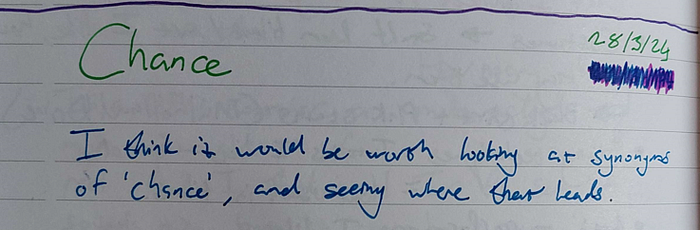 Chance
28/3/24
I think it would be worth looking at synonyms
of 'chance', and seeing where that leads.